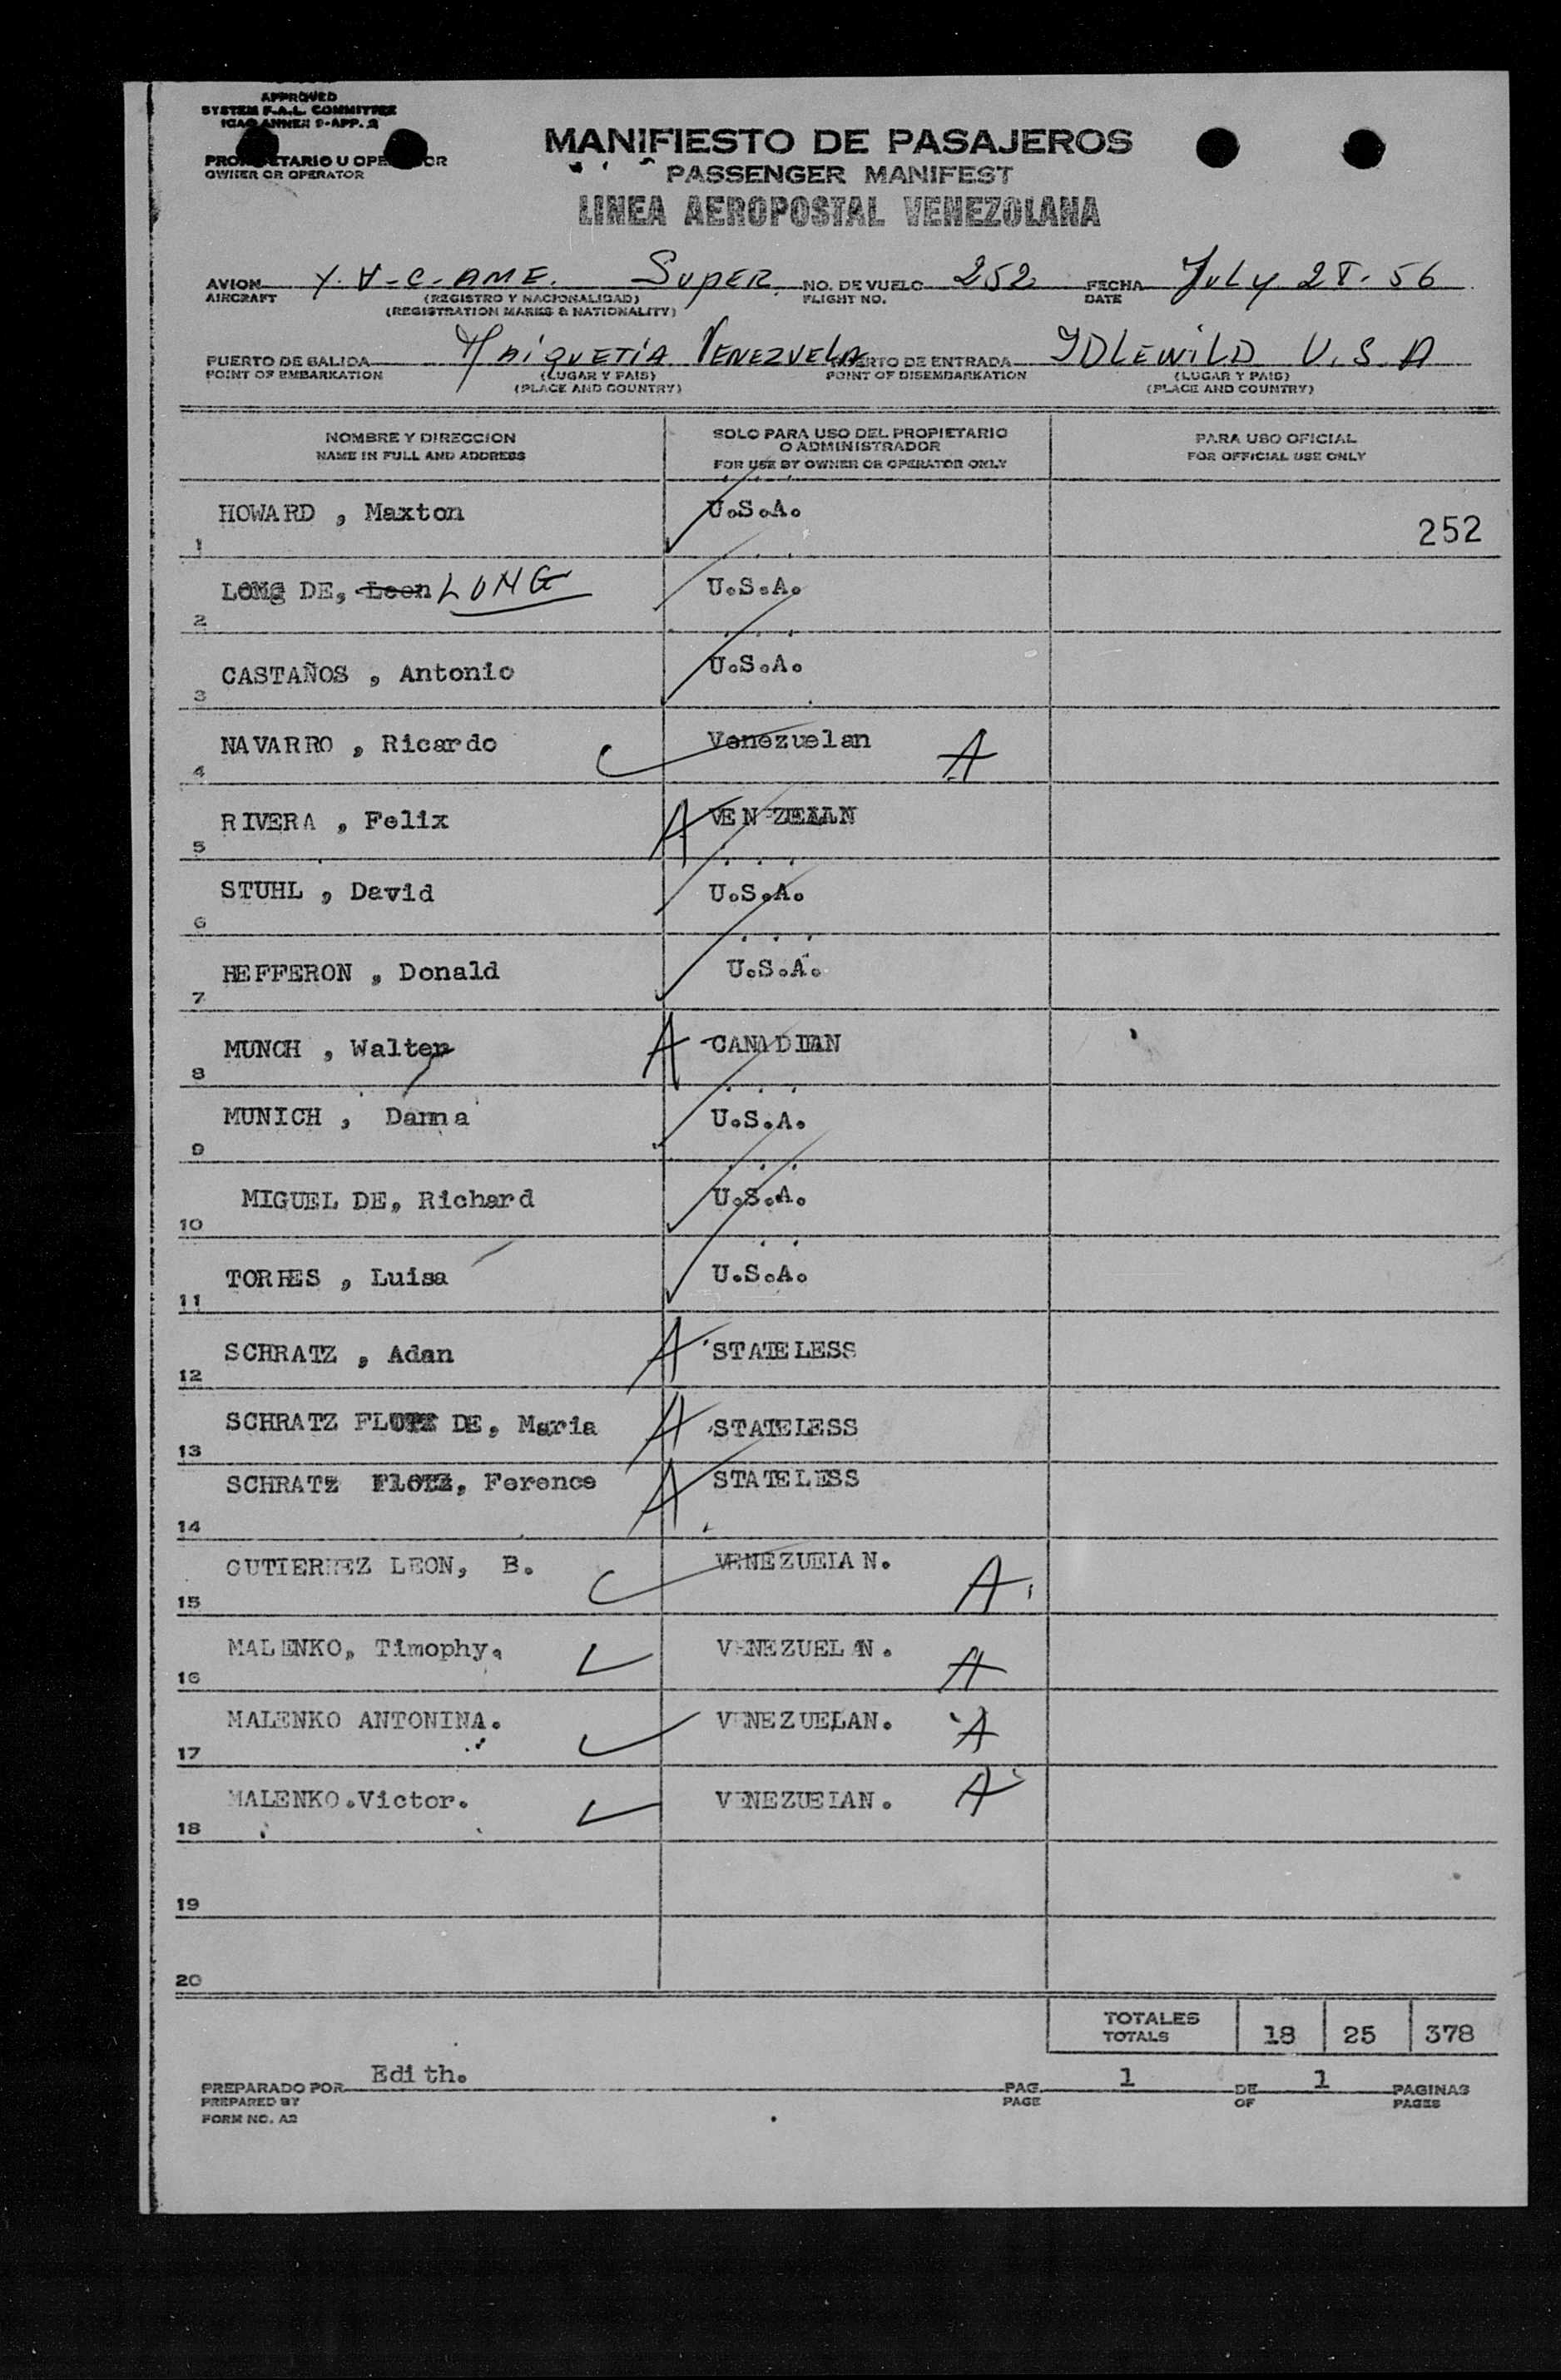 APPROVED
SYSTEM F.A.L. COMMITTEE
ICAO ANNEX 9-APP. 2
PROPIETARIO U OPERADOR
OWNER OR OPERATOR
MANIFIESTO DE PASAJEROS
PASSENGER MANIFEST
LINEA AEROPOSTAL VENEZOLANA
AVION Y.V-C-AME. SUPER. NO. DE VUELO 252 FECHA July 25-56
AIRCRAFT (REGISTRO Y NACIONALIDAD) FLIGHT NO. DATE
(REGISTRATION MARKS & NATIONALITY)
PUERTO DE SALIDA MAIQUETIA VENEZUELA PUERTO DE ENTRADA IDLEWILD U.S.A
POINT OF EMBARKATION (LUGAR Y PAIS) POINT OF DISEMBARKATION (LUGAR Y PAIS)
(PLACE AND COUNTRY) (PLACE AND COUNTRY)
NOMBRE Y DIRECCION SOLO PARA USO DEL PROPIETARIO O ADMINISTRADOR PARA USO OFICIAL
NAME IN FULL AND ADDRESS FOR USE BY OWNER OR OPERATOR ONLY FOR OFFICIAL USE ONLY
1 HOWARD , Maxton U.S.A. 252
2 LONG DE, Leon LONG U.S.A.
3 CASTAÑOS , Antonio U.S.A.
4 NAVARRO , Ricardo Venezuelan A
5 RIVERA , Felix A VENEZUELAN
6 STUHL , David U.S.A.
7 HEFFERON , Donald U.S.A.
8 MUNCH , Walter A CANADIAN
9 MUNICH , Danna U.S.A.
10 MIGUEL DE, Richard U.S.A.
11 TORRES , Luisa U.S.A.
12 SCHRATZ , Adan A STATELESS
13 SCHRATZ FLOTZ DE, Maria A STATELESS
14 SCHRATZ FLOTZ, Ference A STATELESS
15 GUTIERREZ LEON, B. VENEZUELAN. A
16 MALENKO, Timophy. VENEZUELAN. A
17 MALENKO ANTONINA. VENEZUELAN. A
18 MALENKO.Victor. VENEZUELAN. A
19
20
TOTALES 18 25 378
TOTALS
PREPARADO POR Edith. PAG. 1 DE 1 PAGINAS
PREPARED BY PAGE OF PAGES
FORM NO. A2